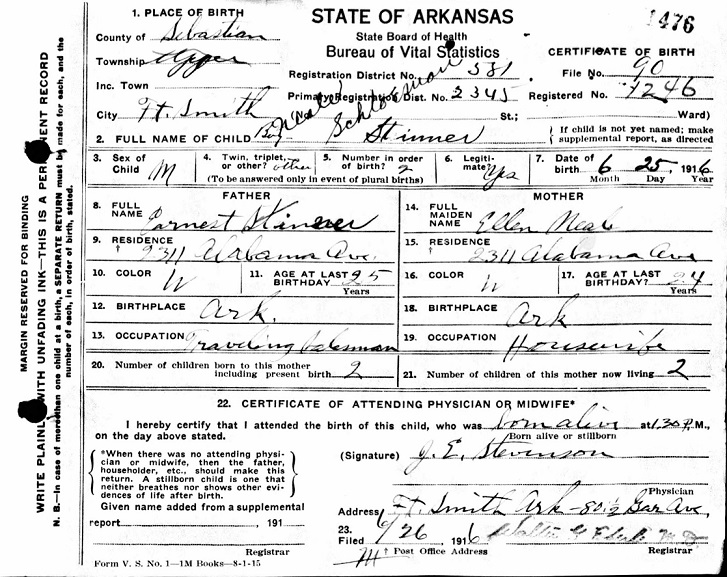 1476
1. PLACE OF BIRTH
County of Sebastian
Township Upper
Inc. Town
City Ft. Smith
STATE OF ARKANSAS
State Board of Health
Bureau of Vital Statistics
Registration District No. 581
Primary Registration Dist. No. 2345
(No. St.; Ward)
CERTIFICATE OF BIRTH
File No. 90
Registered No. 1246
2. FULL NAME OF CHILD Boy Neale Schlosman Skinner
{ If child is not yet named; make supplemental report, as directed
3. Sex of Child M
4. Twin, triplet, or other? other
5. Number in order of birth? 2
(To be answered only in event of plural births)
6. Legitimate? Yes
7. Date of birth 6 25, 1916
Month Day Year
FATHER
8. FULL NAME Earnest Skinner
9. RESIDENCE † 2311 Alabama Ave.
10. COLOR W
11. AGE AT LAST BIRTHDAY 25
Years
12. BIRTHPLACE Ark.
13. OCCUPATION Traveling Salesman
MOTHER
14. FULL MAIDEN NAME Ellen Neal
15. RESIDENCE † 2311 Alabama Ave
16. COLOR W
17. AGE AT LAST BIRTHDAY? 24
Years
18. BIRTHPLACE Ark
19. OCCUPATION Housewife
20. Number of children born to this mother including present birth 2
21. Number of children of this mother now living 2
22. CERTIFICATE OF ATTENDING PHYSICIAN OR MIDWIFE*
I hereby certify that I attended the birth of this child, who was born alive at 1.30 P.M.,
Born alive or stillborn
on the day above stated.
{ *When there was no attending physi-
cian or midwife, then the father,
householder, etc., should make this
return. A stillborn child is one that
neither breathes nor shows other evi-
dences of life after birth. }
(Signature) J. E. Stevenson
Physician
Given name added from a supplemental
report , 191
Registrar
Address Ft. Smith Ark - 801½ Gar Ave,
23. Filed 6/26 1916
M † Post Office Address Registrar
Form V. S. No. 1—1M Books—8-1-15
MARGIN RESERVED FOR BINDING
WRITE PLAINLY WITH UNFADING INK—THIS IS A PERMANENT RECORD
N. B.—In case of more than one child at a birth, a SEPARATE RETURN must be made for each, and the
number of each, in order of birth, stated.